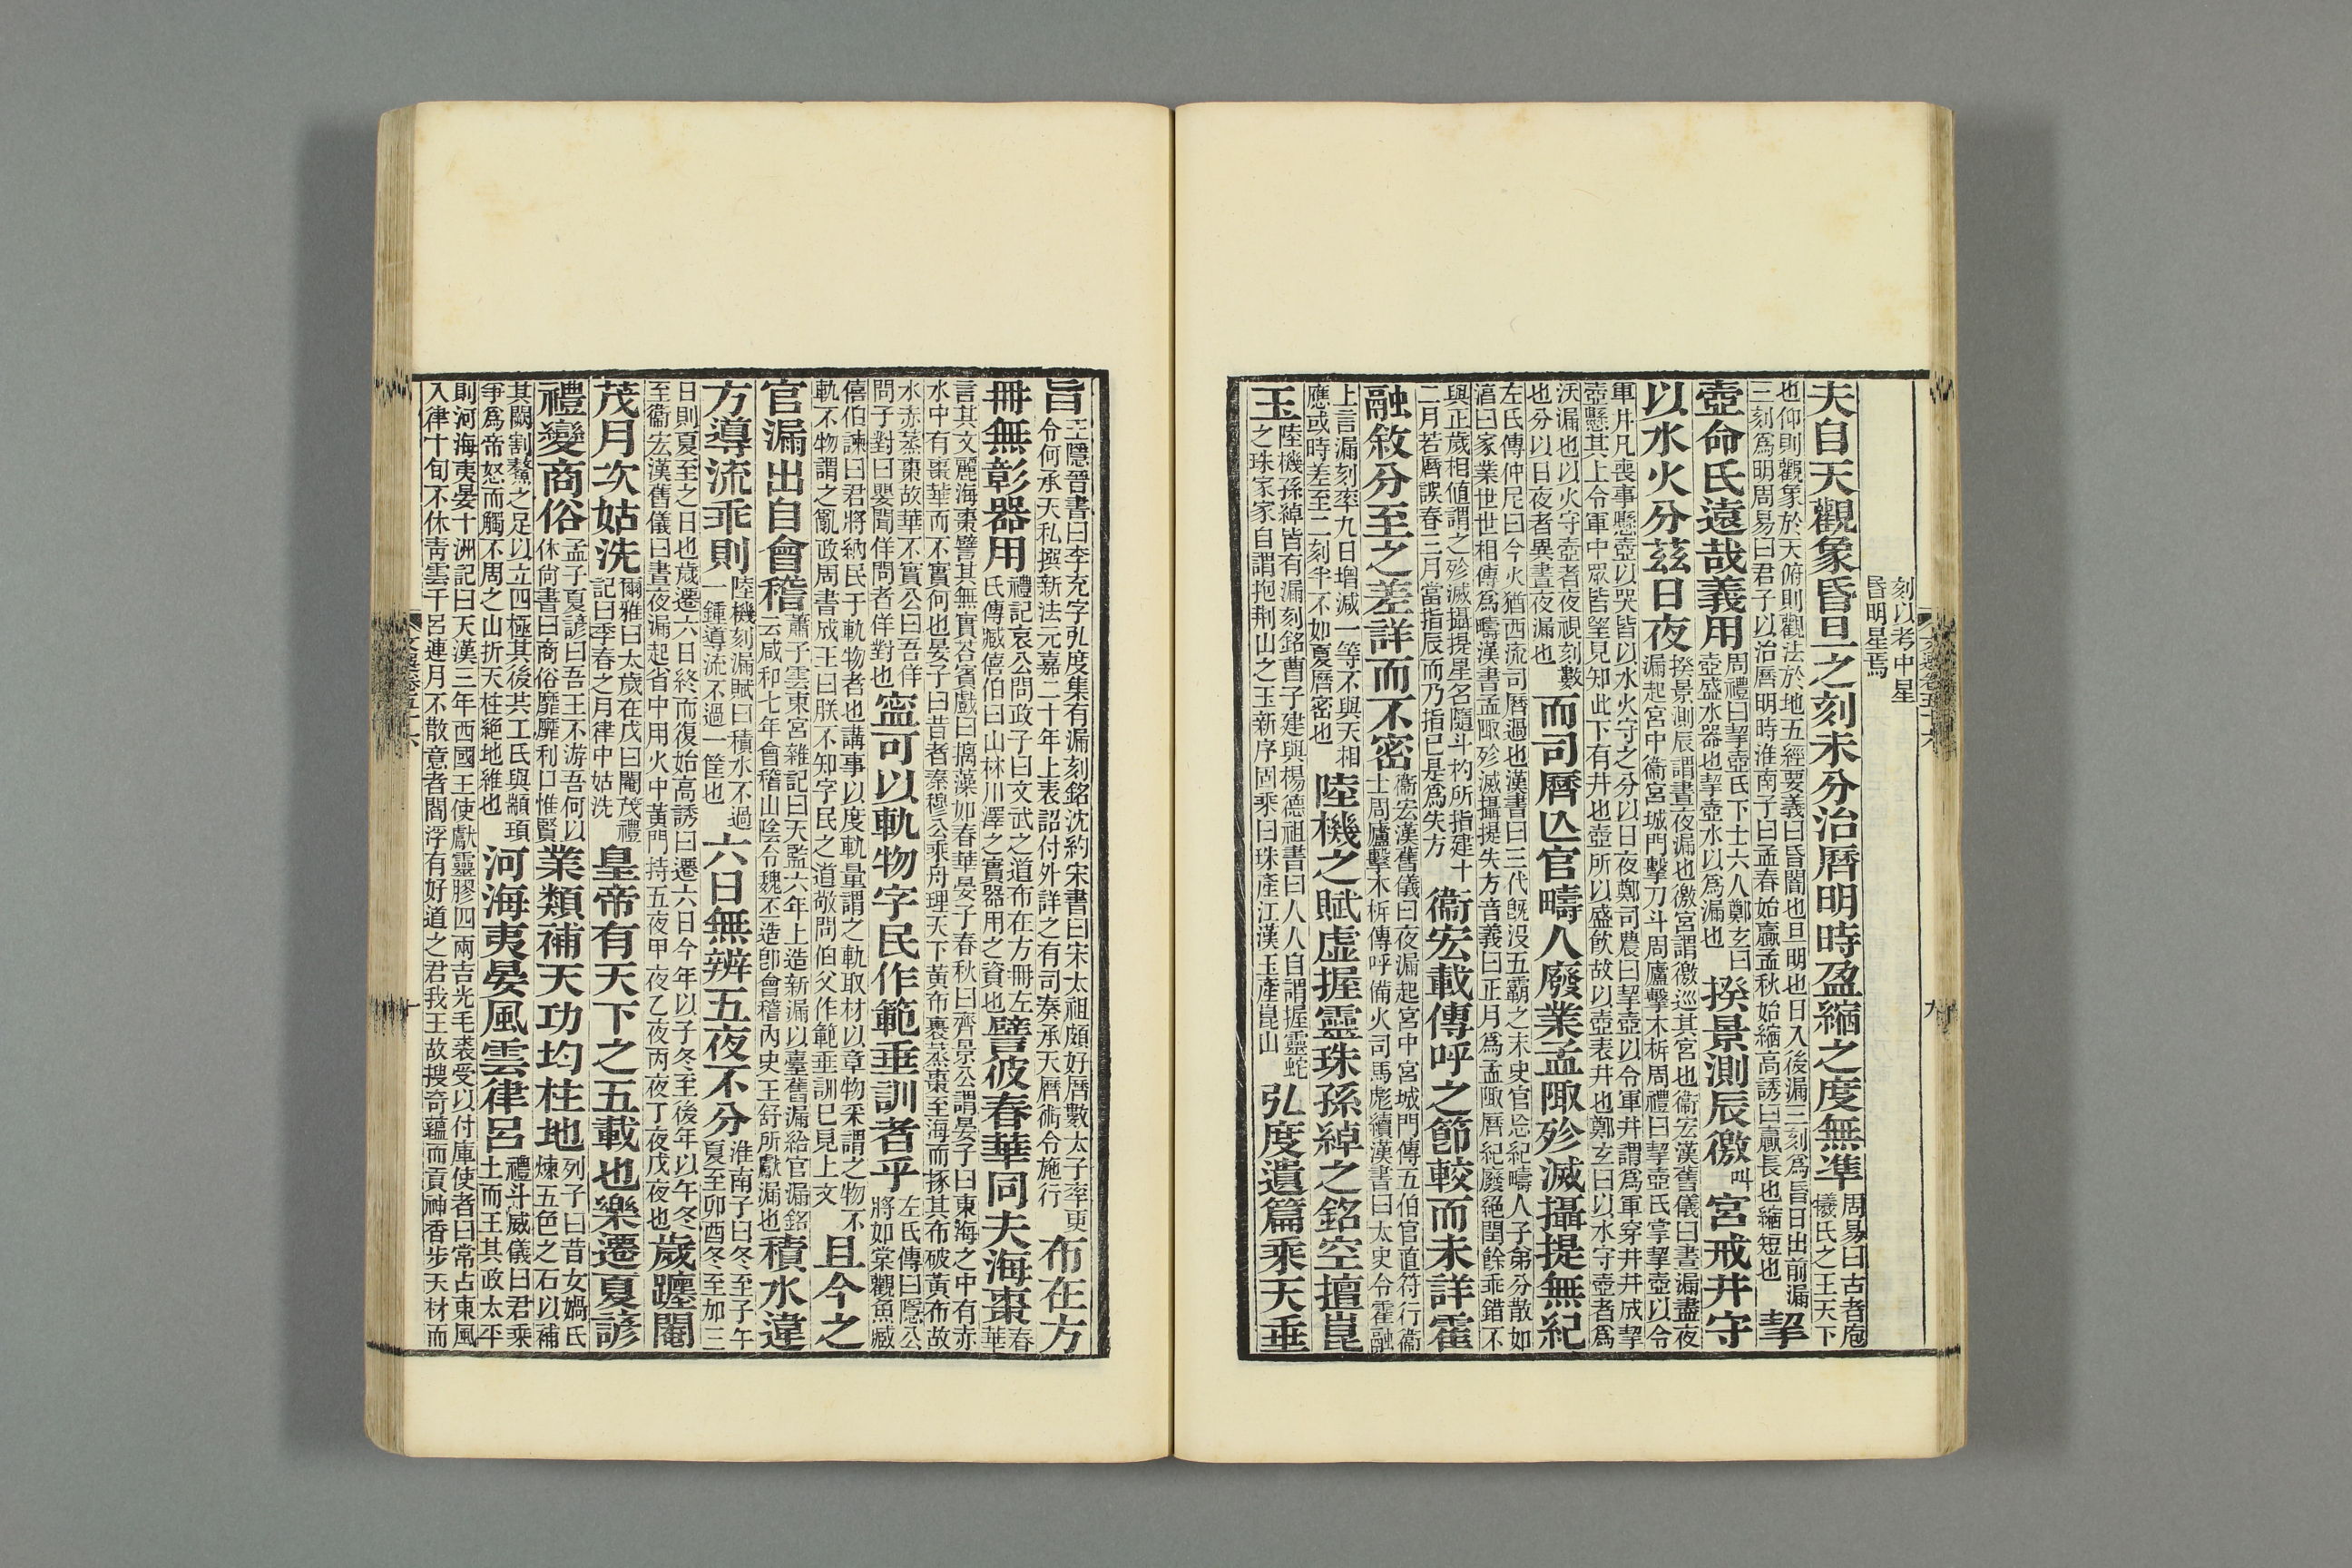 刻以考中星
昬明星焉
夫自天觀象昏旦之刻未分治曆明時盈縮之度無準周易曰古者庖犧氏之王天下
也仰則觀象於天俯則觀法於地五經要義曰昏闇也旦明也日入後漏三刻爲昏日出前漏三刻爲明周易曰君子以治曆明時淮南子曰孟春始贏孟秋始縮高誘曰贏長也縮短也挈
壺命氏遠哉義用周禮曰挈壺氏下士六人鄭玄曰壺盛水器也挈壺水以爲漏也揆景測辰徼叫宮戒井守
以水火分茲日夜揆景測辰謂晝夜漏也徼宮謂徼巡其宮也衞宏漢舊儀曰晝漏盡夜漏起宮中衞宮城門擊刀斗周廬擊木柝周禮曰挈壺氏掌挈壺以令
軍井凡喪事懸壺以哭皆以水火守之分以日夜鄭司農曰挈壺以令軍井謂爲軍穿井井成挈壺懸其上令軍中眾皆望見知此下有井也壺所以盛飮故以壺表井也鄭玄曰以水守壺者爲
沃漏也以火守壺者夜視刻數也分以日夜者異晝夜漏也而司曆亾官疇人廢業孟陬殄滅攝提無紀
左氏傳仲尼曰今火猶西流司曆過也漢書曰三代旣沒五霸之末史官忩紀疇人子弟分散如淳曰家業世世相傳爲疇漢書孟陬殄滅攝提失方音義曰正月爲孟陬曆紀廢絕閏餘乖錯不
與正歲相値謂之殄滅攝提星名隨斗杓所指建十二月若曆誤春三月當指辰而乃指巳是爲失方衞宏載傳呼之節較而未詳霍
融敘分至之差詳而不密衞宏漢舊儀曰夜漏起宮中宮城門傳五伯官直符行衞士周廬擊木柝傳呼備火司馬彪續漢書曰太史令霍融
上言漏刻率九日增減一等不與天相應或時差至二刻半不如夏曆密也陸機之賦虛握靈珠孫綽之銘空擅崑
玉陸機孫綽皆有漏刻銘曹子建與楊德祖書曰人人自謂握靈蛇之珠家家自謂抱荆山之玉新序固乘曰珠產江漢玉產崑山弘度遺篇乘天垂
九
旨王隱晉書曰李充字弘度集有漏刻銘沈約宋書曰宋太祖頗好曆數太子率更令何承天私撰新法元嘉二十年上表詔付外詳之有司奏承天曆術令施行布在方
冊無彰器用禮記哀公問政子曰文武之道布在方冊左氏傳臧僖伯曰山林川澤之實器用之資也譬彼春華同夫海棗春華
言其文麗海棗譬其無實荅賓戲曰摛藻如春華晏子春秋曰齊景公謂晏子曰東海之中有赤水中有棗華而不實何也晏子曰昔者秦穆公乘舟理天下黃布裹蒸棗至海而捄其布破黃布故
水赤蒸棗故華不實公曰吾佯問子對曰嬰聞佯問者佯對也寍可以軌物字民作範垂訓者乎左氏傳曰隱公將如棠觀魚臧
僖伯諫曰君將納民于軌物者也講事以度軌量謂之軌取材以章物采謂之物不軌不物謂之亂政周書成王曰朕不知字民之道敬問伯父作範垂訓巳見上文且今之
官漏出自會稽蕭子雲東宮雜記曰天監六年上造新漏以臺舊漏給官漏銘云咸和七年會稽山陰令魏丕造卽會稽內史王舒所獻漏也積水違
方導流乖則陸機刻漏賦曰積水不過一鍾導流不過一筐也六日無辨五夜不分淮南子曰冬至子午夏至卯酉冬至加三
日則夏至之日也歲遷六日終而復始高誘曰遷六日今年以子冬至後年以午冬至衞宏漢舊儀曰晝夜漏起省中用火中黃門持五夜甲夜乙夜丙夜丁夜戊夜也歲躔閹
茂月次姑洗爾雅曰太歲在戊曰閹茂禮記曰季春之月律中姑洗皇帝有天下之五載也樂遷夏諺
禮變商俗孟子夏諺曰吾王不游吾何以休尙書曰商俗靡靡利口惟賢業類補天功均柱地列子曰昔女媧氏煉五色之石以補
其闕割鼇之足以立四極其後共工氏與顓頊爭爲帝怒而觸不周之山折天柱絕地維也河海夷晏風雲律呂禮斗威儀曰君乘土而王其政太平
則河海夷晏十洲記曰天漢三年西國王使獻靈膠四兩吉光毛裘受以付庫使者曰常占東風入律十旬不休靑雲干呂連月不散意者閻浮有好道之君我王故搜奇蘊而貢神香步天材而
十